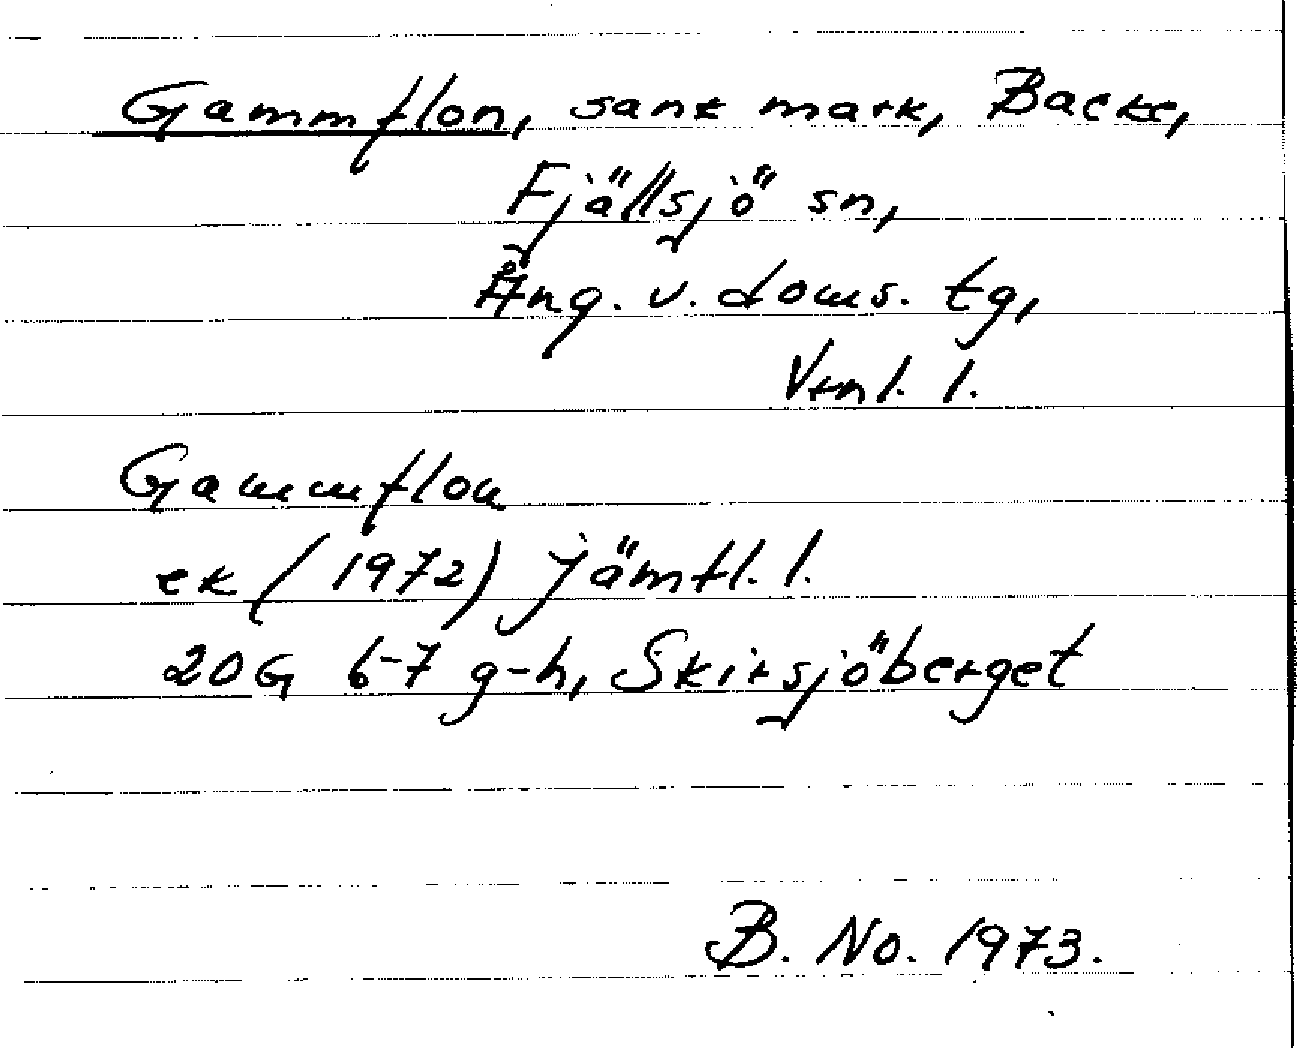 Gammflon, sank mark, Backe,
Fjällsjö sn,
Ång. v. doms. tg,
Vrnl. l.
Gammflon
ek (1972) Jämtl. l.
20G 6-7 g-h, Skirsjöberget
B. No. 1973.